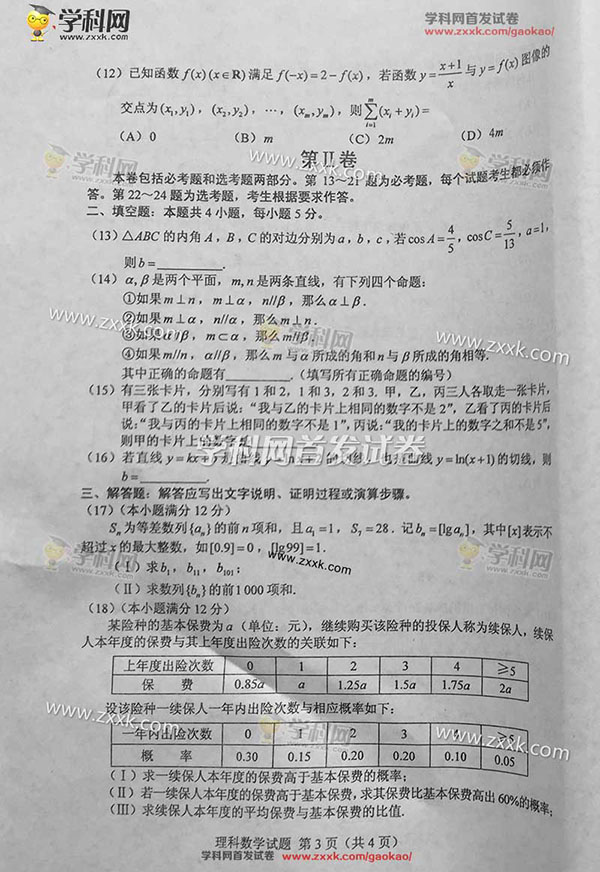 学科网
www.zxxk.com
学科网首发试卷
www.zxxk.com/gaokao/
(12) 已知函数 f(x)(x∈R) 满足 f(−x)=2−f(x)，若函数 y=(x+1)/x 与 y=f(x) 图像的
交点为 (x₁,y₁)，(x₂,y₂)，⋯，(xₘ,yₘ)，则 ∑ᵢ₌₁ᵐ(xᵢ+yᵢ)=
(A) 0 (B) m (C) 2m (D) 4m
第Ⅱ卷
本卷包括必考题和选考题两部分。第 13～21 题为必考题，每个试题考生都必须作
答。第 22～24 题为选考题，考生根据要求作答。
二、填空题：本题共 4 小题，每小题 5 分。
(13) △ABC 的内角 A，B，C 的对边分别为 a，b，c，若 cos A=4/5，cos C=5/13，a=1，
则 b=________.
(14) α,β 是两个平面，m,n 是两条直线，有下列四个命题：
①如果 m⊥n，m⊥α，n//β，那么 α⊥β.
②如果 m⊥α，n//α，那么 m⊥n.
③如果 α//β，m⊂α，那么 m//β.
④如果 m//n，α//β，那么 m 与 α 所成的角和 n 与 β 所成的角相等.
其中正确的命题有________.（填写所有正确命题的编号）
(15) 有三张卡片，分别写有 1 和 2，1 和 3，2 和 3. 甲，乙，丙三人各取走一张卡片，
甲看了乙的卡片后说：“我与乙的卡片上相同的数字不是 2”，乙看了丙的卡片后
说：“我与丙的卡片上相同的数字不是 1”，丙说：“我的卡片上的数字之和不是 5”，
则甲的卡片上的数字
(16) 若直线 y=kx+ 的切线，也是曲线 y=ln(x+1) 的切线，则
b=________.
三、解答题：解答应写出文字说明、证明过程或演算步骤。
(17)（本小题满分 12 分）
Sₙ 为等差数列 {aₙ} 的前 n 项和，且 a₁=1，S₇=28. 记 bₙ=[lg aₙ]，其中 [x] 表示不
超过 x 的最大整数，如 [0.9]=0，[lg99]=1.
(Ⅰ) 求 b₁，b₁₁，b₁₀₁；
(Ⅱ) 求数列 {bₙ} 的前 1 000 项和.
(18)（本小题满分 12 分）
某险种的基本保费为 a（单位：元），继续购买该险种的投保人称为续保人，续保
人本年度的保费与其上年度出险次数的关联如下：
上年度出险次数 0 1 2 3 4 ≥5
保 费 0.85a a 1.25a 1.5a 1.75a 2a
设该险种一续保人一年内出险次数与相应概率如下：
一年内出险次数 0 1 2 3 4 ≥5
概 率 0.30 0.15 0.20 0.20 0.10 0.05
(Ⅰ) 求一续保人本年度的保费高于基本保费的概率；
(Ⅱ) 若一续保人本年度的保费高于基本保费，求其保费比基本保费高出 60%的概率；
(Ⅲ) 求续保人本年度的平均保费与基本保费的比值.
理科数学试题 第 3 页（共 4 页）
学科网首发试卷 www.zxxk.com/gaokao/